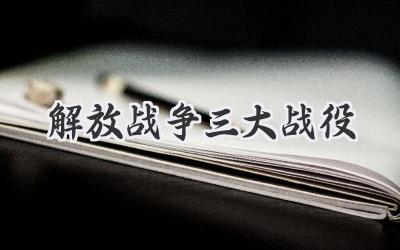 解放战争三大战役